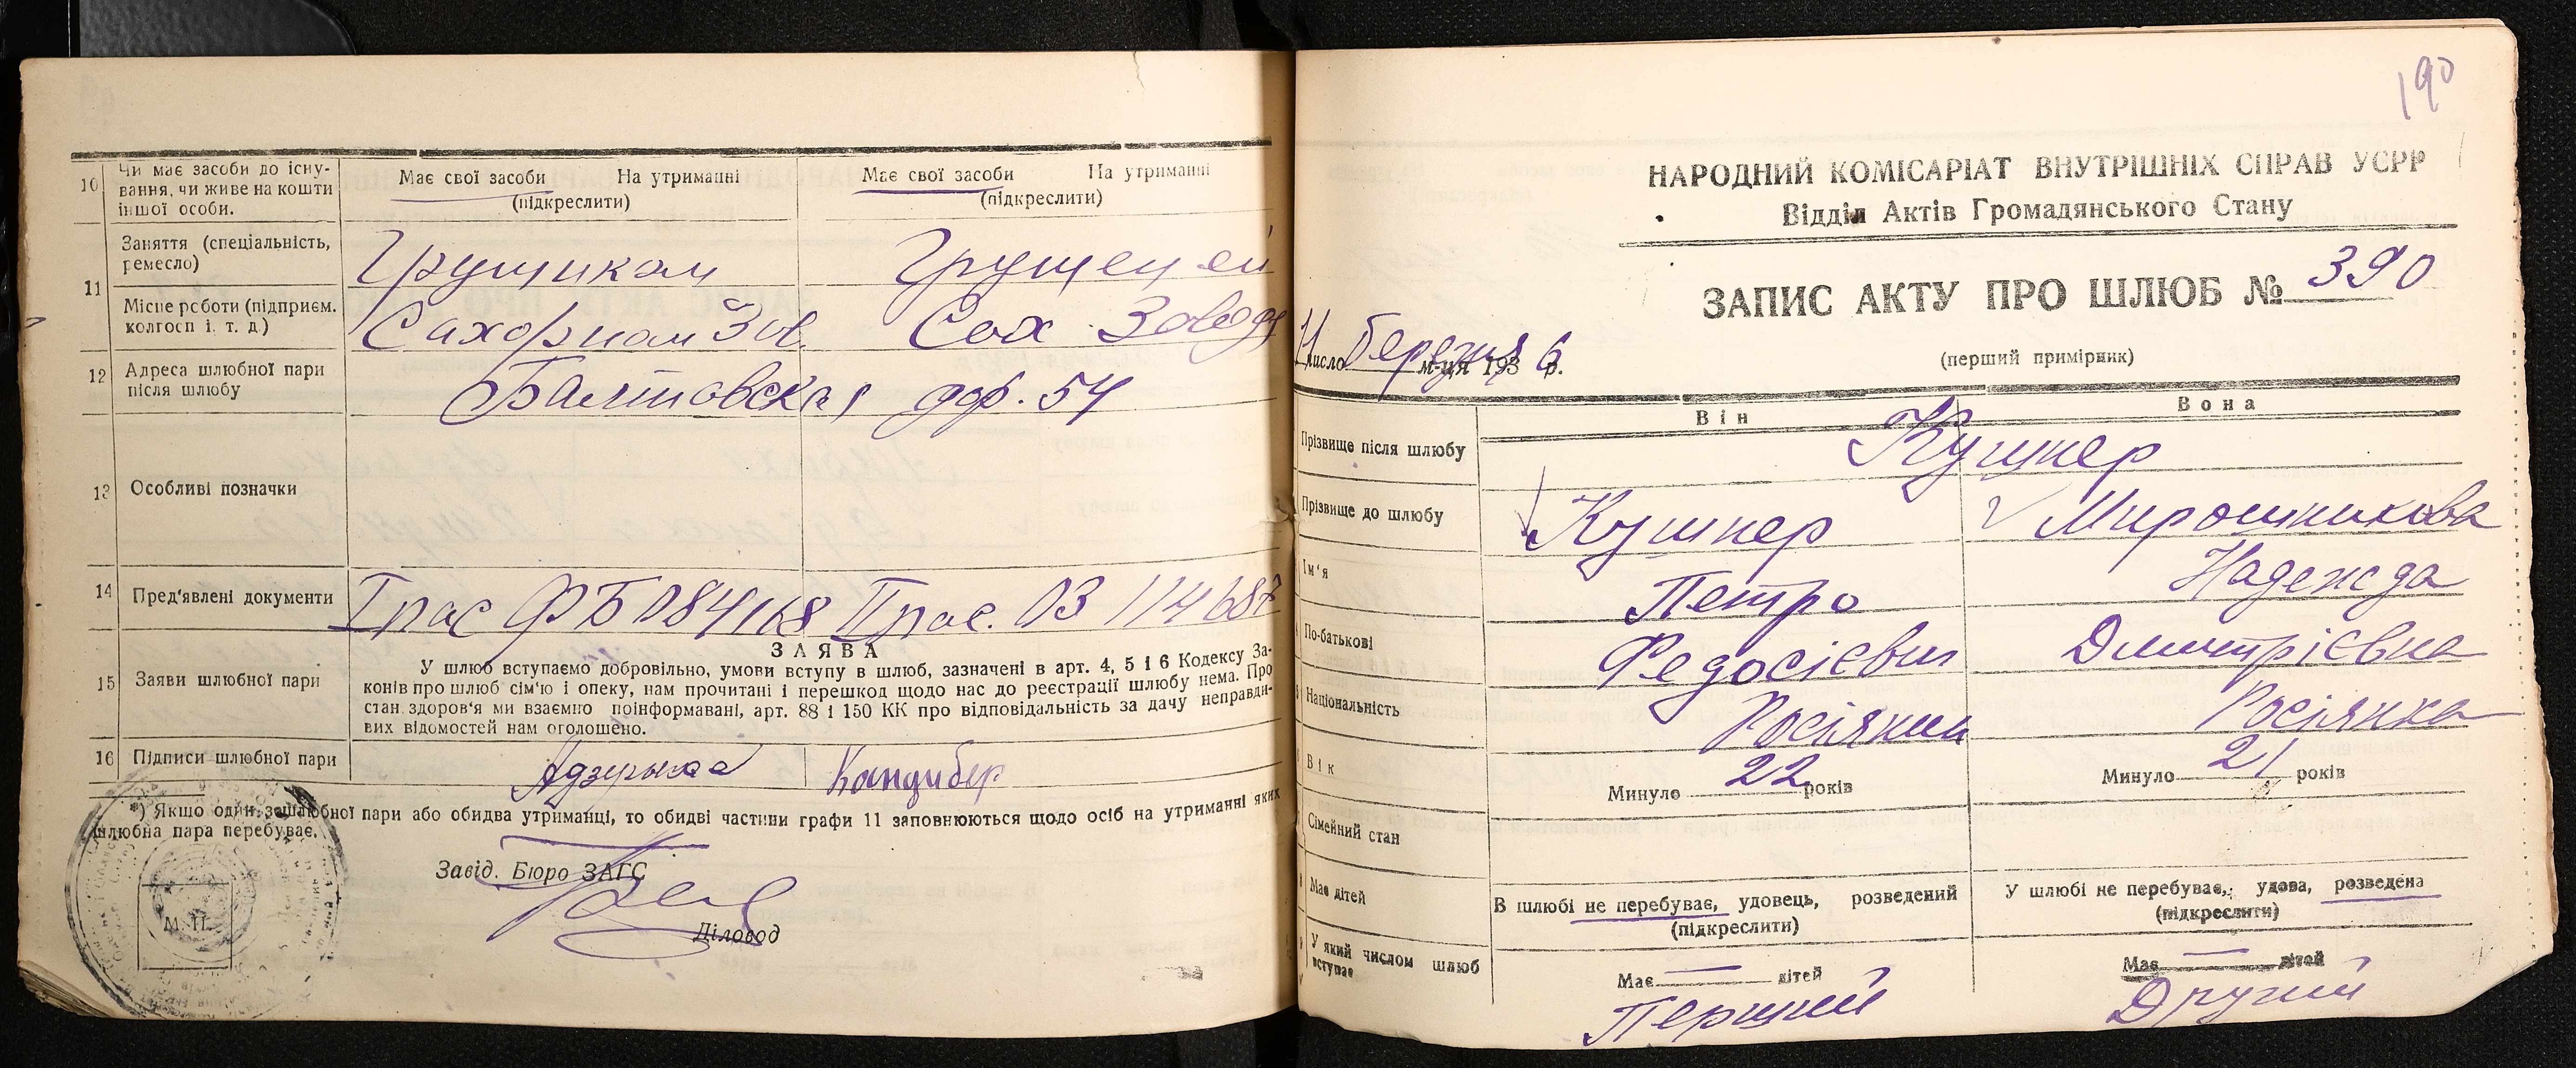 10 Чи має засоби до існу-
вання, чи живе на кошти
іншої особи.
Має свої засоби На утриманні
(підкреслити)
Має свої засоби На утриманні
(підкреслити)
11 Заняття (спеціальність,
ремесло)
Грущиком
Місце роботи (підприєм.
колгосп і. т. д.)
Сахорном Зов.
Сах. Заводе
12 Адреса шлюбної пари
після шлюбу
Балтовская 54
13 Особливі позначки
14 Пред'явлені документи
I пас ФБ 084168 II пас. 03 114687
15 Заяви шлюбної пари
ЗАЯВА
У шлюб вступаємо добровільно, умови вступу в шлюб, зазначені в арт. 4, 5 і 6 Кодексу За-
конів про шлюб сім'ю і опеку, нам прочитані і перешкод щодо нас до реєстрації шлюбу нема. Про
стан здоров'я ми взаємно поінформавані, арт. 88 і 150 КК про відповідальність за дачу неправди-
вих відомостей нам оголошено.
16 Підписи шлюбної пари
Кандибер
*) Якщо один зшлюбної пари або обидва утриманці, то обидві частини графи 11 заповнюються щодо осіб на утриманні яких
шлюбна пара перебуває.
Завід. Бюро ЗАГС
Діловод
М. П.
190
НАРОДНИЙ КОМІСАРІАТ ВНУТРІШНІХ СПРАВ УСРР
Відділ Актів Громадянського Стану
ЗАПИС АКТУ ПРО ШЛЮБ № 390
(перший примірник)
11 число березня м-ця 1936 р.
Він Вона
Прізвище після шлюбу
Кушнер
Прізвище до шлюбу
Кушнер Мирошникова
Ім'я
Петро Надежда
По-батькові
Федосієвич Дмитрієвна
Національність
Росіянин Росіянка
Вік
Минуло 22 років Минуло 21 років
Сімейний стан
В шлюбі не перебуває, удовець, розведений
(підкреслити)
У шлюбі не перебуває, удова, розведена
(підкреслити)
Має дітей
Має — дітей Має — дітей
У який числом шлюб
вступає
Перший Другий